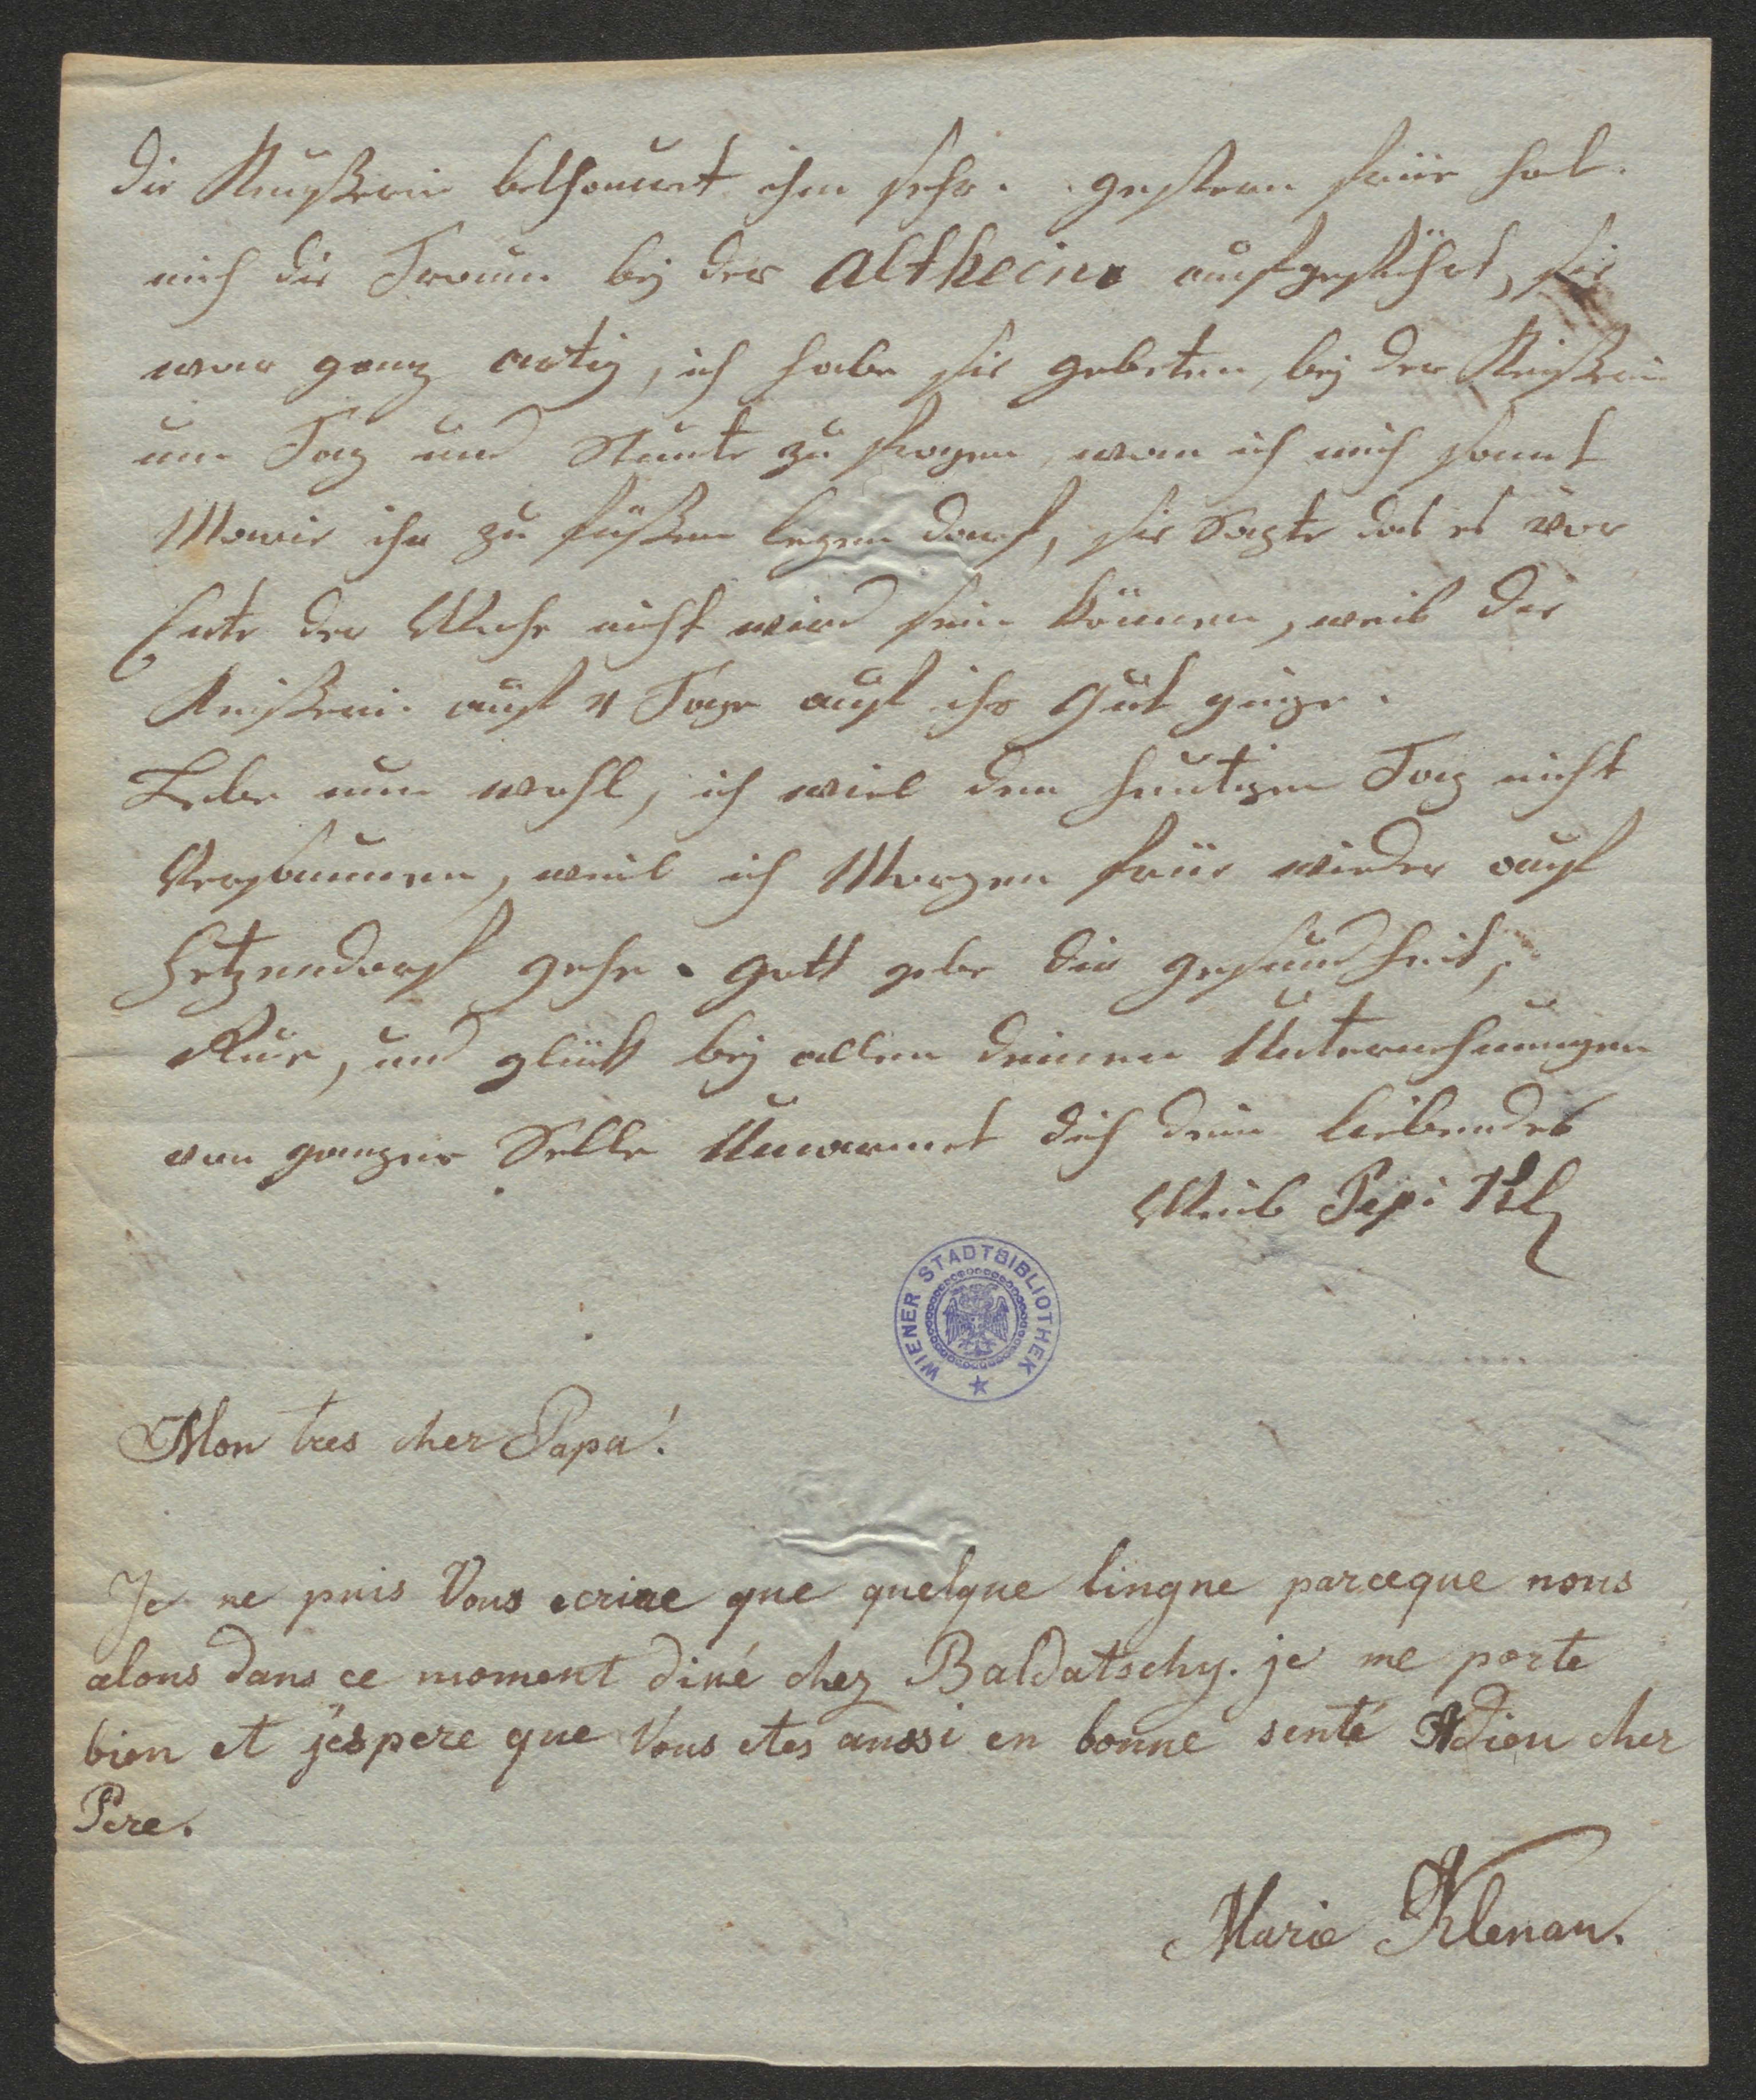 die Keußerin bethauert ihm sehr. gestern früe hat
mich die Traun bej der altheim aufgeführt, sie
war ganz artig, ich habe sie gebeten, bej der Keißerin
um Tag und Stunte zu fragen, wan ich mich samt
Marie ihr zu füßen legen darf, sie Sagte das es vor
Ente der Woche nicht wird sein können, weil die
Keißerin auf 4 Tage auf ihr Gut ginge.
Lebe nun wohl, ich wiel den heutigen Tag nicht
Versaumen, weil ich Morgen früe wieder auf
Hetzendorf gehe. gott gebe dir gesundheit,
Rue, und glück bej allen deinen Unternehmungen
von ganzer Selle Umarmet dich dein liebendes
Weib Pepi Kl
WIENER STADTBIBLIOTHEK
Mon tres cher Papa!
Je ne puis Vous ecrire que quelque lingne parceque nous
alons dans ce moment diné chez Baldatschy. je me porte
bien et j'espere que Vous etes aussi en bonne senté Adieu cher
Pere.
Marie Klenau.